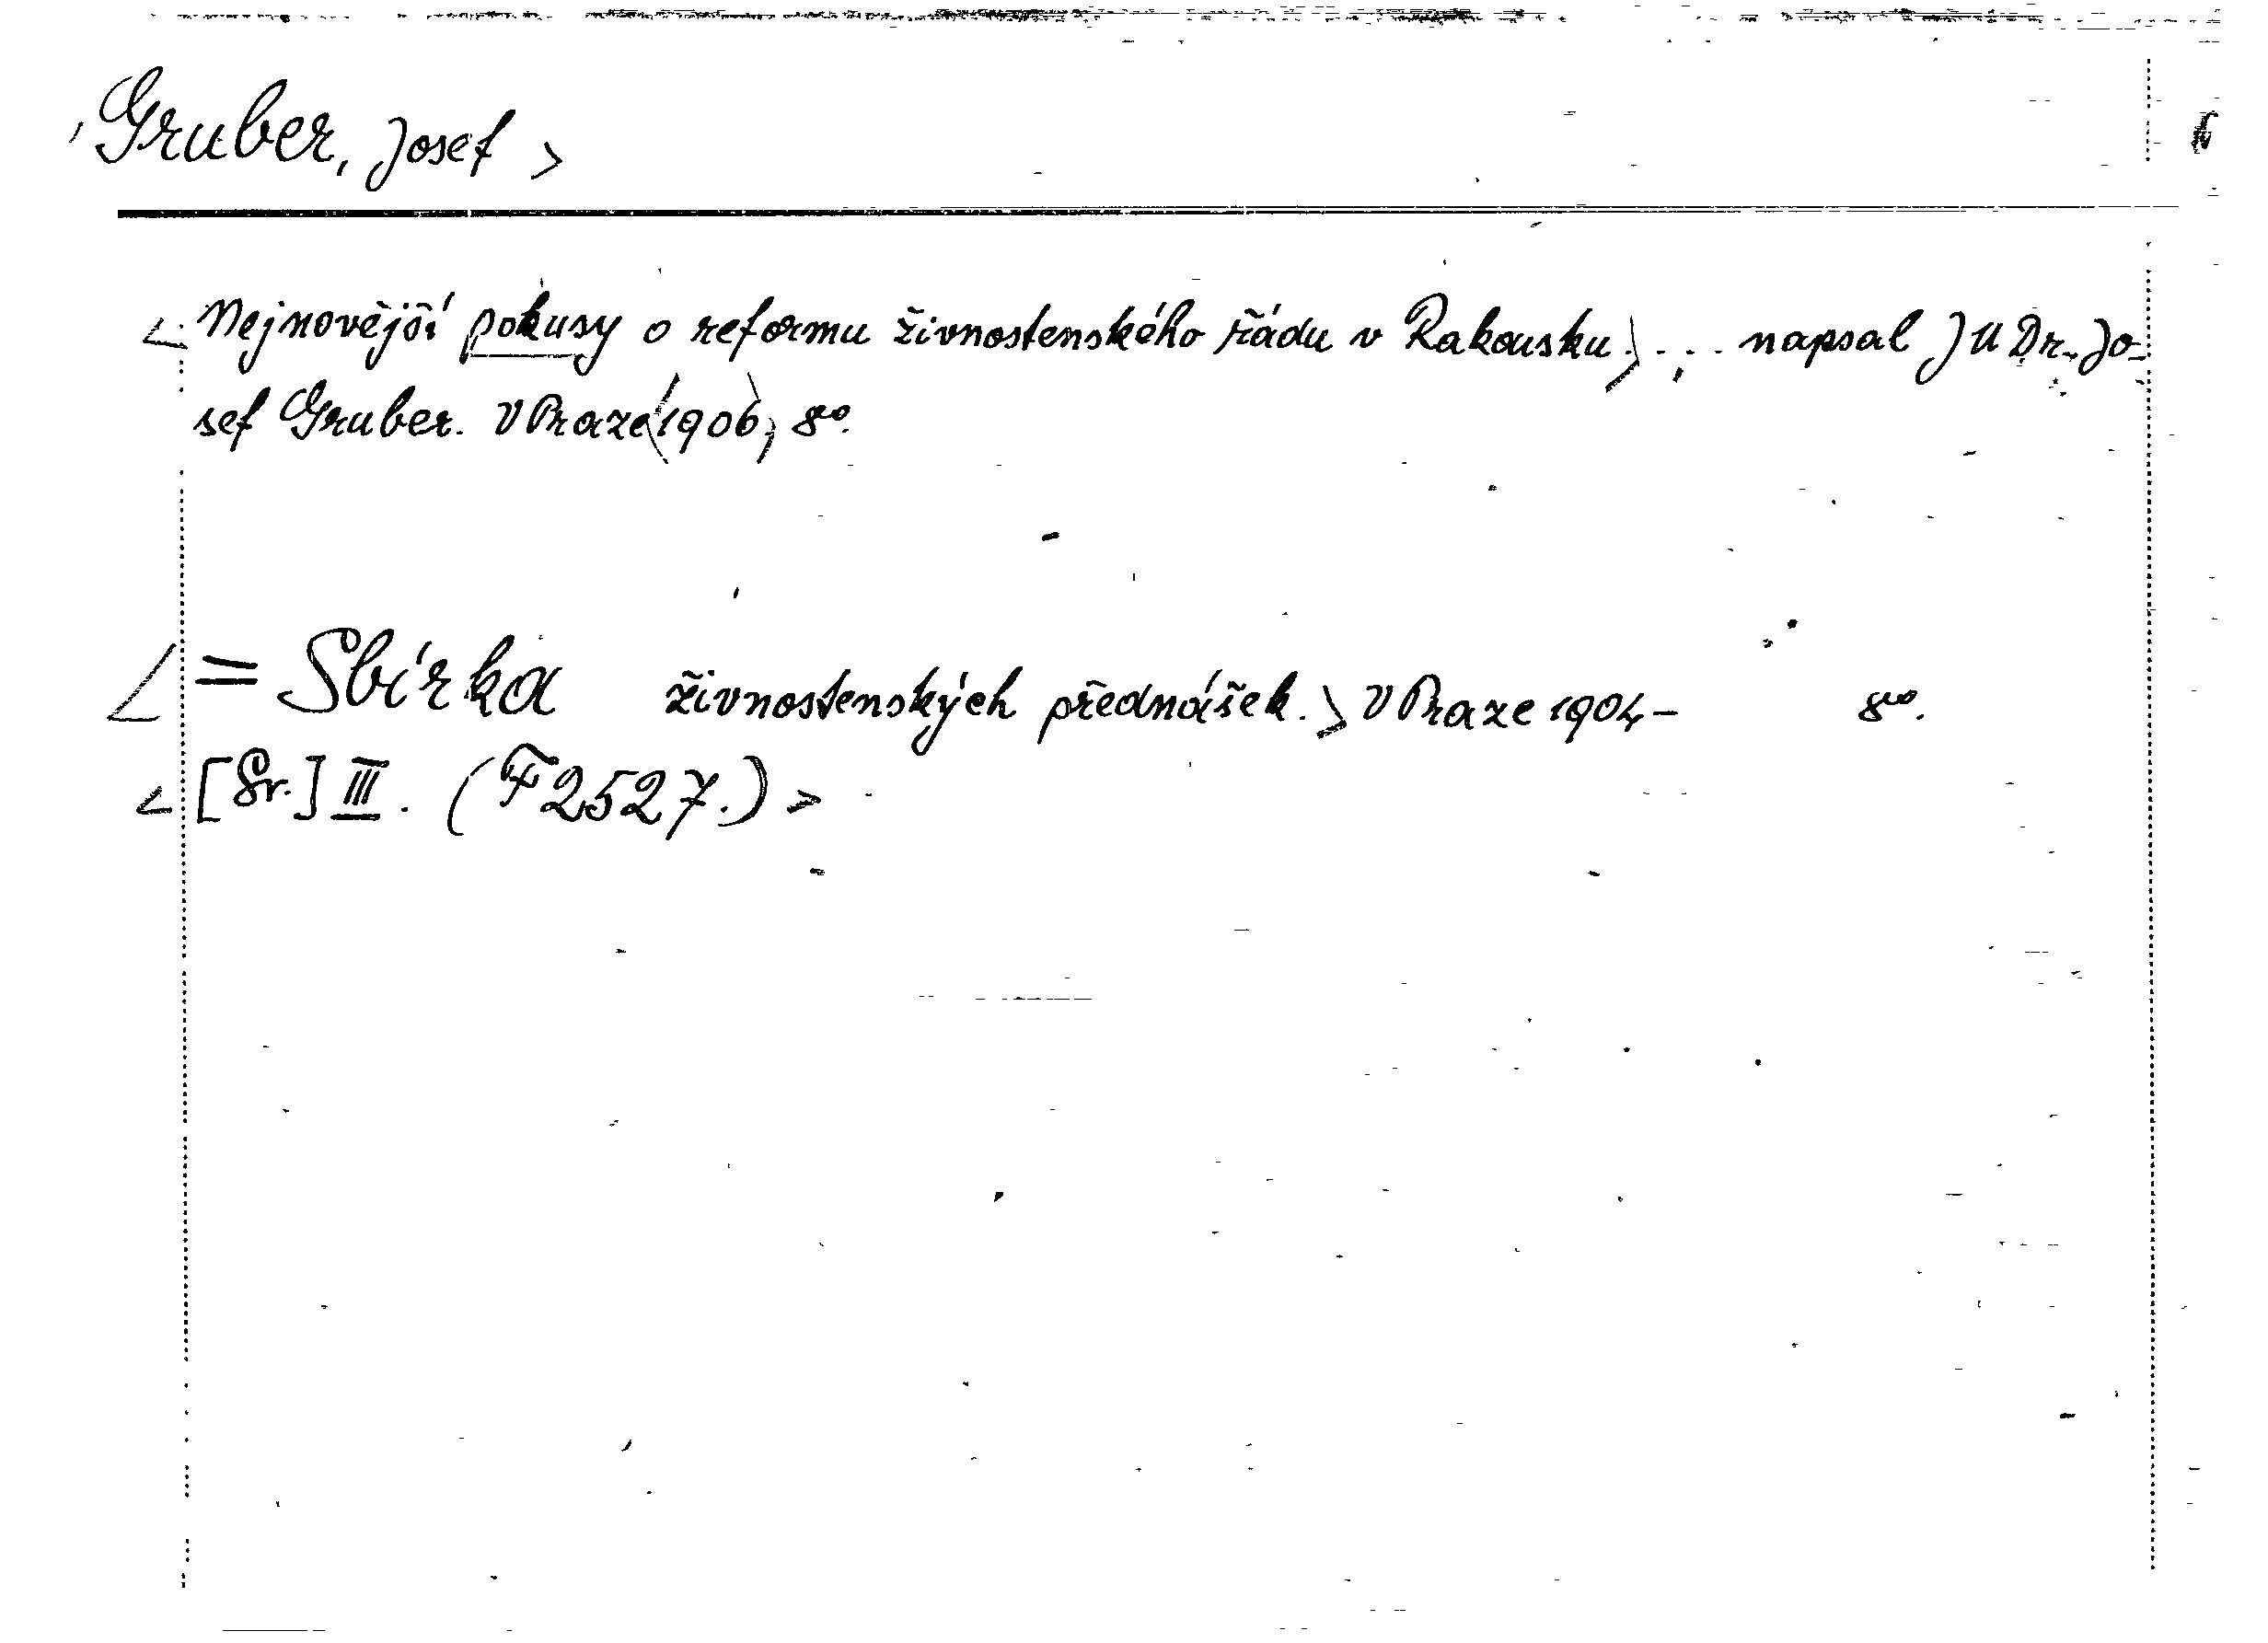 Gruber, Josef >
< Nejnovější pokusy o reformu živnostenského řádu v Rakousku.> ... napsal JUDr. Jo-
sef Gruber. V Praze <1906,> 8º.
< = Sbírka živnostenských přednášek. > V Praze 1904 - 8º.
< [Sv.] III. (F 2527.) >